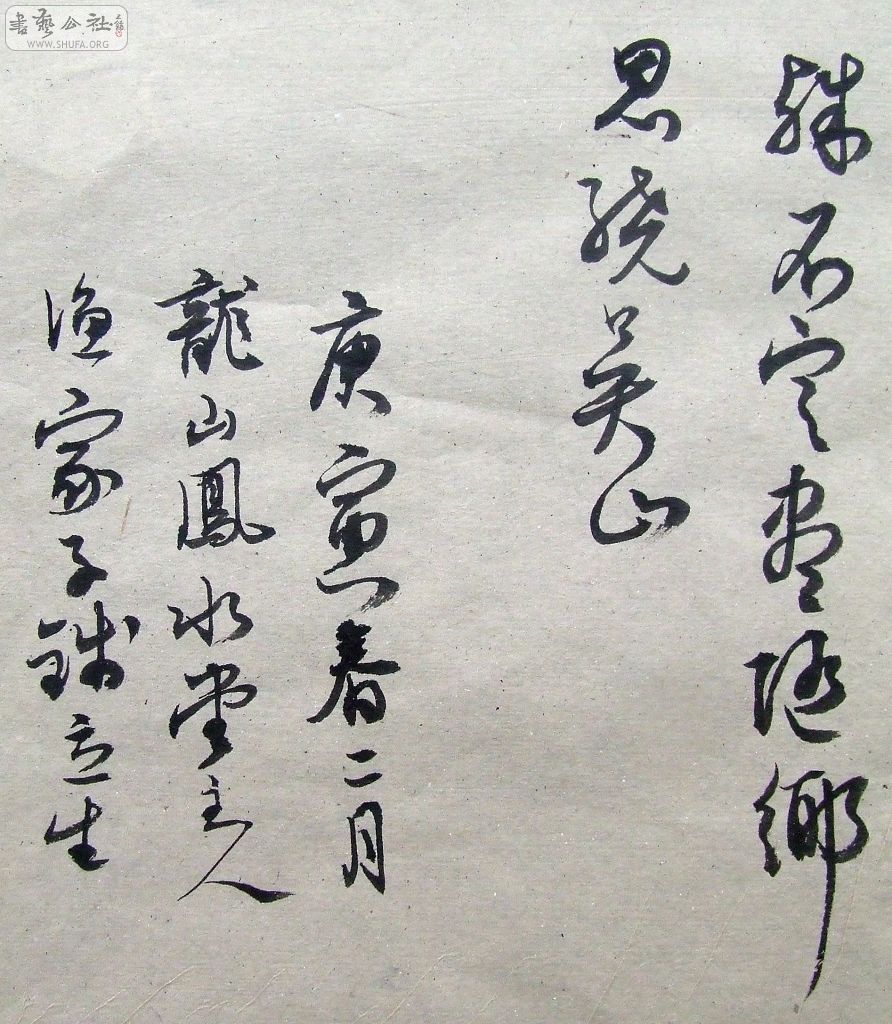 書藝公社
WWW.SHUFA.ORG
殊不定盡隨鄉
思繞吳山
庚寅春二月
龍山鳳水堂主人
漁家子錢立生